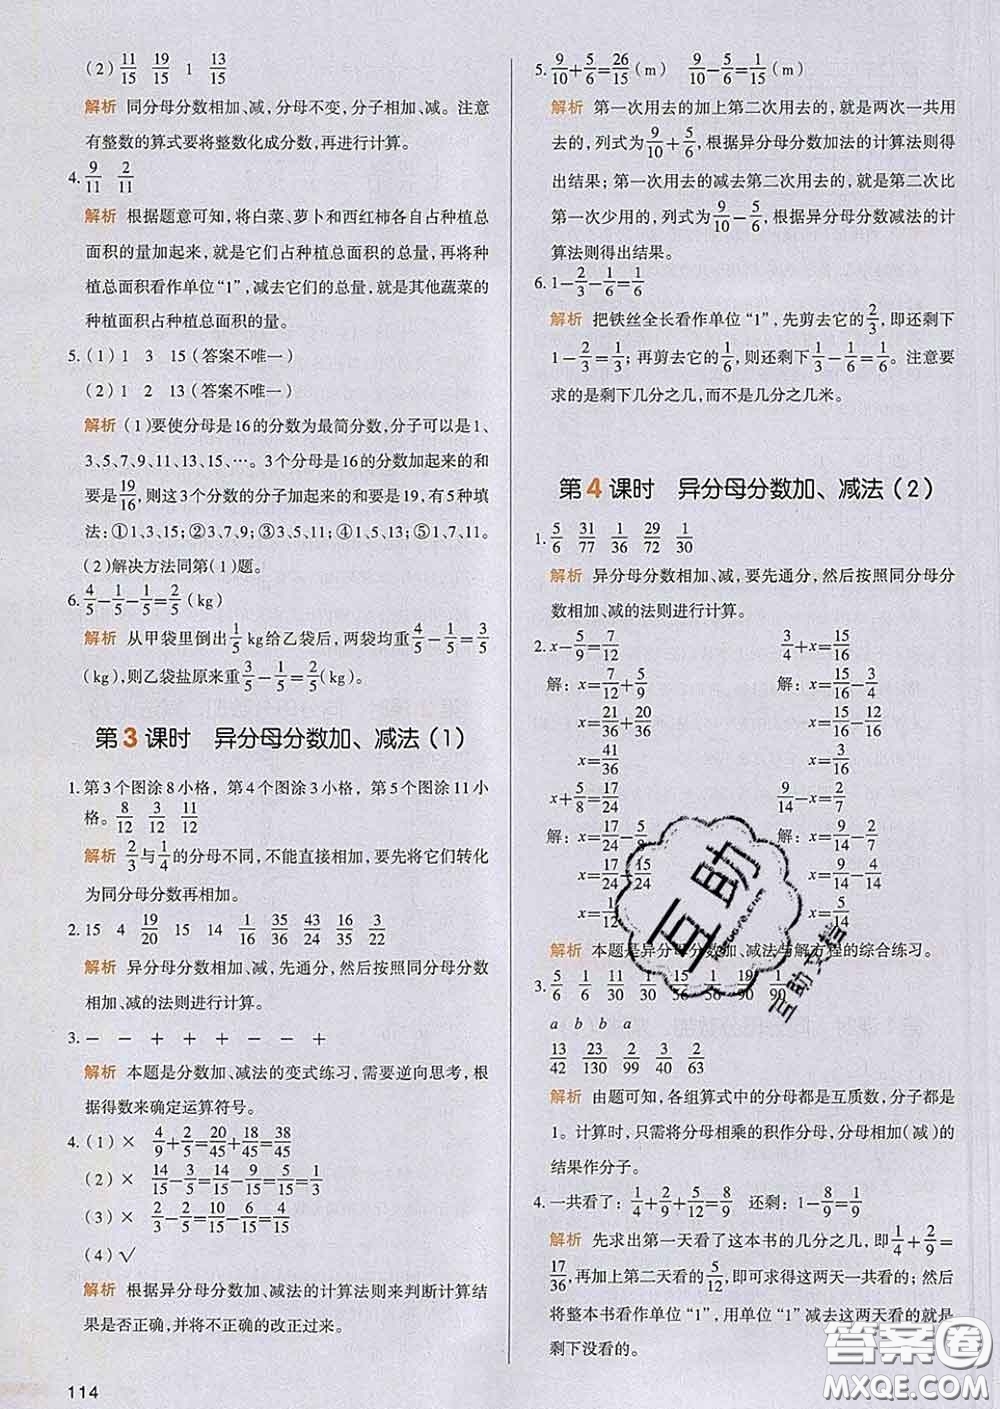 (2) 11/15 19/15 1 13/15
解析 同分母分数相加、减,分母不变,分子相加、减。注意
有整数的算式要将整数化成分数,再进行计算。
4. 9/11 2/11
解析 根据题意可知,将白菜、萝卜和西红柿各自占种植总
面积的量加起来,就是它们占种植总面积的总量,再将种
植总面积看作单位“1”,减去它们的总量,就是其他蔬菜的
种植面积占种植总面积的量。
5. (1) 1 3 15(答案不唯一)
(2) 1 2 13(答案不唯一)
解析 (1)要使分母是16的分数为最简分数,分子可以是1、
3、5、7、9、11、13、15、…。3个分母是16的分数加起来的和
要是19/16,则这3个分数的分子加起来的和要是19,有5种填
法:①1、3、15;②3、7、9;③1、7、11;④1、5、13;⑤1、7、11。
(2)解决方法同第(1)题。
6. 4/5-1/5-1/5=2/5(kg)
解析 从甲袋里倒出1/5 kg给乙袋后,两袋均重4/5-1/5=3/5
(kg),则乙袋盐原来重3/5-1/5=2/5(kg)。
第3课时 异分母分数加、减法(1)
1. 第3个图涂8小格,第4个图涂3小格,第5个图涂11小
格。8/12 3/12 11/12
解析 2/3与1/4的分母不同,不能直接相加,要先将它们转化
为同分母分数再相加。
2. 15 4 19/20 15 14 1/15 1/36 35/24 43/36 16/15 3/22
解析 异分母分数相加、减,先通分,然后按照同分母分数
相加、减的法则进行计算。
3. - - + + - - - +
解析 本题是分数加、减法的变式练习,需要逆向思考,根
据得数来确定运算符号。
4. (1) × 4/9+2/5=20/45+18/45=38/45
(2) × 14/15-3/5=14/15-9/15=5/15=1/3
(3) × 2/3-2/5=10/15-6/15=4/15
(4) √
解析 根据异分母分数加、减法的计算法则来判断计算结
果是否正确,并将不正确的改正过来。
114
5. 9/10+5/6=26/15(m) 9/10-5/6=1/15(m)
解析 第一次用去的加上第二次用去的,就是两次一共用
去的,列式为9/10+5/6,根据异分母分数加法的计算法则得
出结果;第一次用去的减去第二次用去的,就是第二次比
第一次少用的,列式为9/10-5/6,根据异分母分数减法的计
算法则得出结果。
6. 1-2/3-1/6=1/6
解析 把铁丝全长看作单位“1”,先剪去它的2/3,即还剩下
1-2/3=1/3;再剪去它的1/6,则还剩下1/3-1/6=1/6。注意要
求的是剩下几分之几,而不是几分之几米。
第4课时 异分母分数加、减法(2)
1. 5/6 31/77 1/36 29/72 1/30
解析 异分母分数相加、减,要先通分,然后按照同分母分
数相加、减的法则进行计算。
2. x-5/9=7/12 3/4+x=15/16
解:x=7/12+5/9 解:x=15/16-3/4
x=21/36+20/36 x=15/16-12/16
x=41/36 x=3/16
x+5/8=17/24 9/14-x=2/7
解:x=17/24-5/8 解:x=9/14-2/7
x=17/24-15/24 x=9/14-4/14
x=1/12 x=5/14
解析 本题是异分母分数加、减法与解方程的综合练习。
3. 5/6 1/6 11/30 1/30 15/56 1/56 19/90 1/90
a b b a
13/42 23/130 2/99 3/40 2/63
解析 由题可知,各组算式中的分母都是互质数,分子都是
1。计算时,只需将分母相乘的积作分母,分母相加(减)的
结果作分子。
4. 一共看了:1/4+2/9+5/12=8/9 还剩:1-8/9=1/9
解析 先求出第一天看了这本书的几分之几,即1/4+2/9=
17/36,再加上第二天看的5/12,即可求得这两天一共看的;然后
将整本书看作单位“1”,用单位“1”减去这两天看的就是
剩下没看的。
互助
互助文档
答案圈
MXQE.COM